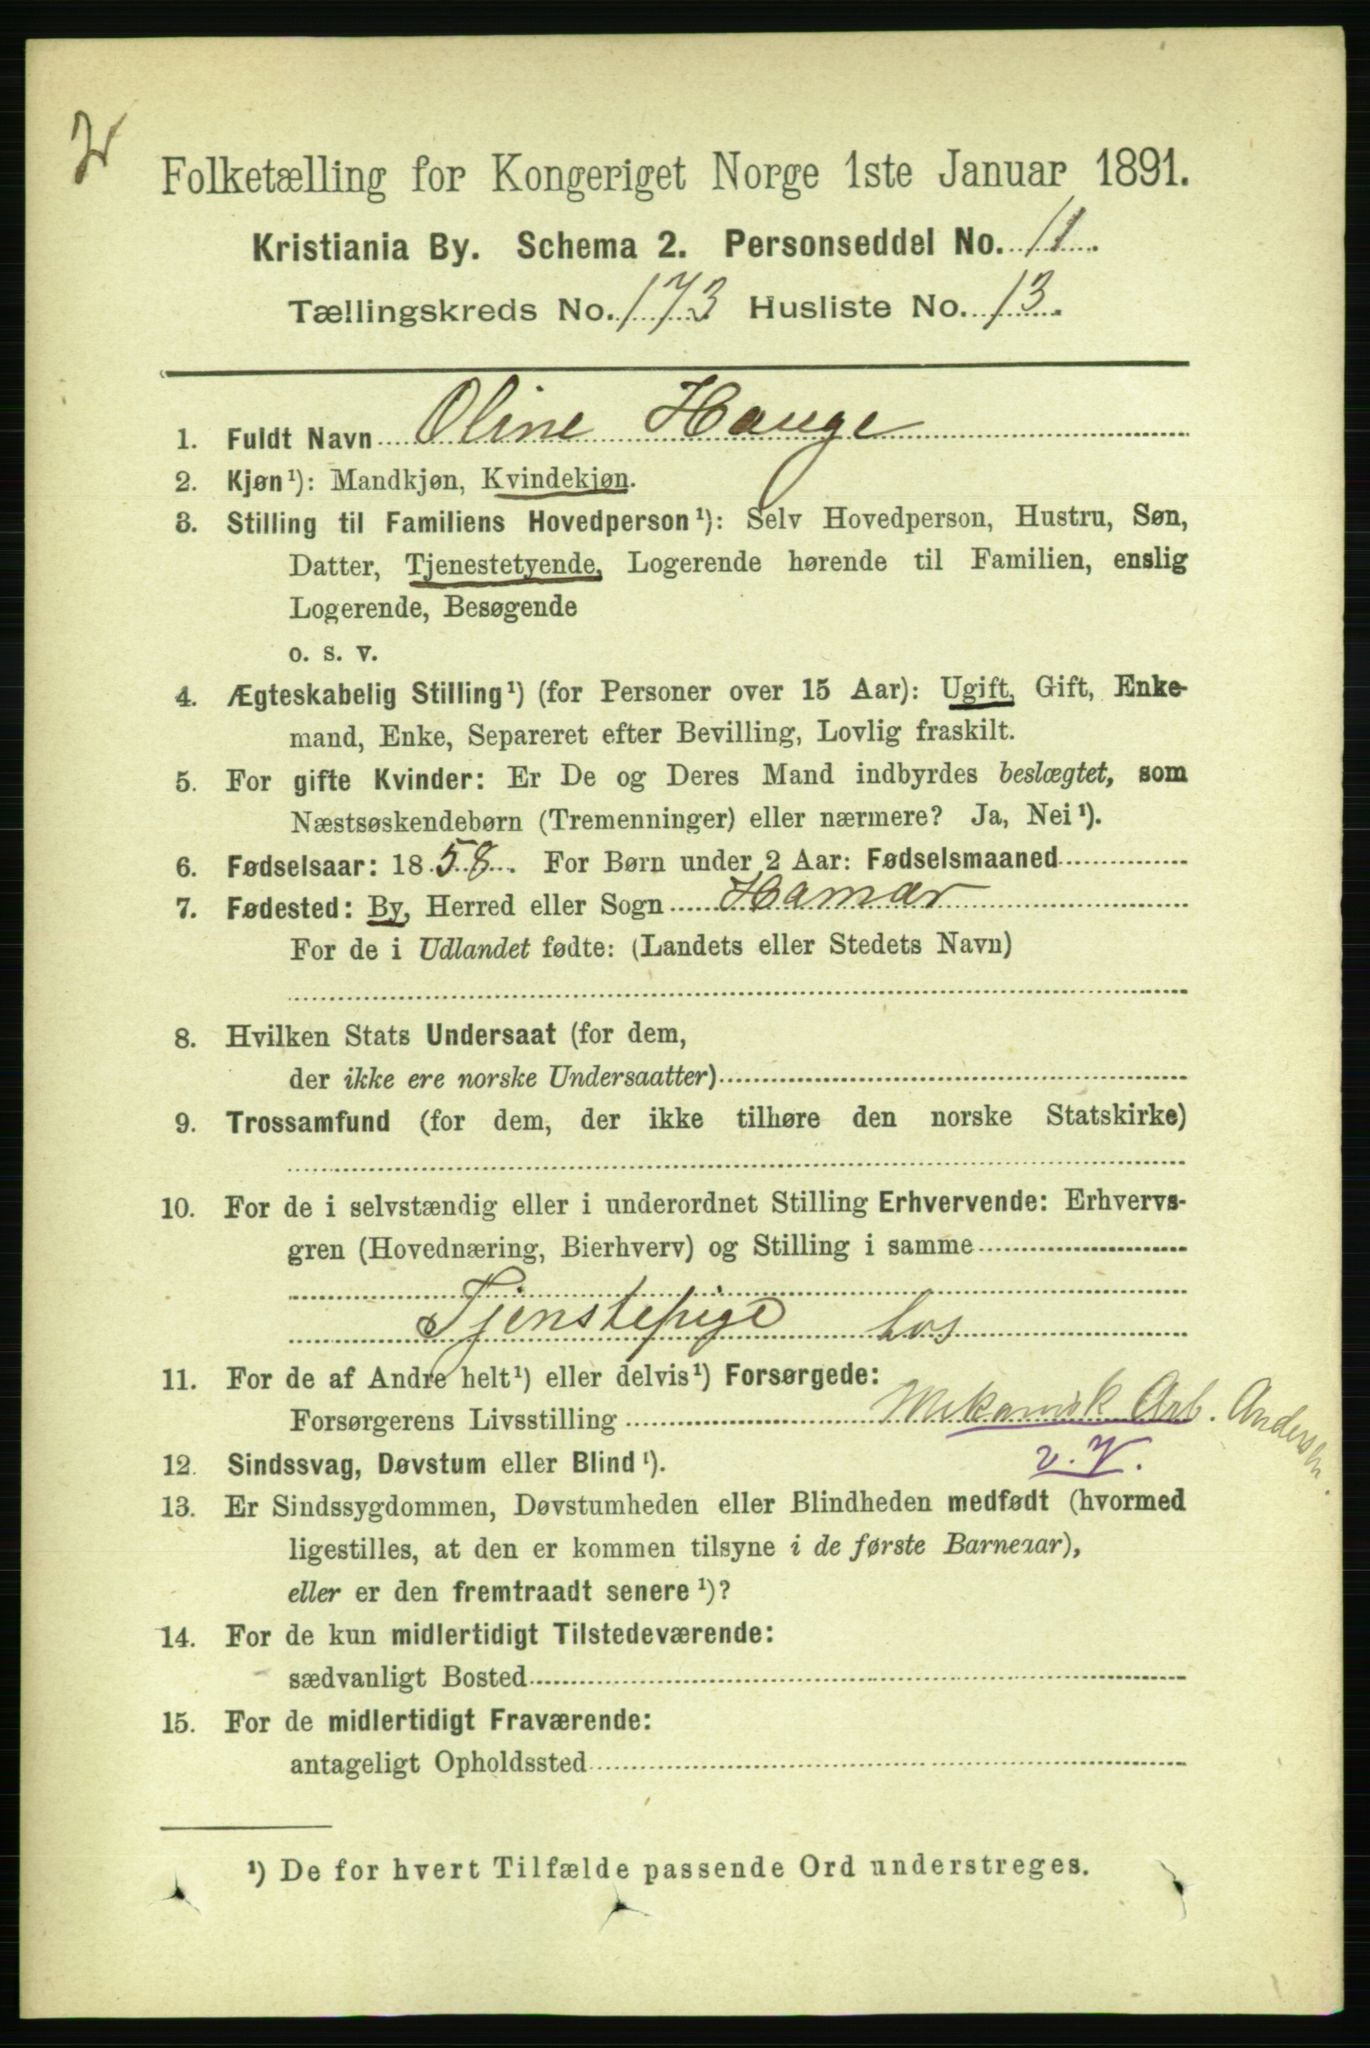 Folketælling for Kongeriget Norge 1ste Januar 1891.
Kristiania By. Schema 2. Personseddel No. 11.
Tællingskreds No. 173 Husliste No. 13.
1. Fuldt Navn Oline Hauge
2. Kjøn¹): Mandkjøn, Kvindekjøn.
3. Stilling til Familiens Hovedperson¹): Selv Hovedperson, Hustru, Søn,
Datter, Tjenestetyende, Logerende hørende til Familien, enslig
Logerende, Besøgende
o. s. v.
4. Ægteskabelig Stilling¹) (for Personer over 15 Aar): Ugift, Gift, Enke-
mand, Enke, Separeret efter Bevilling, Lovlig fraskilt.
5. For gifte Kvinder: Er De og Deres Mand indbyrdes beslægtet, som
Næstsøskendebørn (Tremenninger) eller nærmere? Ja, Nei¹).
6. Fødselsaar: 1858. For Børn under 2 Aar: Fødselsmaaned
7. Fødested: By, Herred eller Sogn Hamar
For de i Udlandet fødte: (Landets eller Stedets Navn)
8. Hvilken Stats Undersaat (for dem,
der ikke ere norske Undersaatter)
9. Trossamfund (for dem, der ikke tilhøre den norske Statskirke)
10. For de i selvstændig eller i underordnet Stilling Erhvervende: Erhvervs-
gren (Hovednæring, Bierhverv) og Stilling i samme
Tjenstepige hos
11. For de af Andre helt¹) eller delvis¹) Forsørgede:
Forsørgerens Livsstilling Mekanisk Arb. Andersen.
12. Sindssvag, Døvstum eller Blind¹). v. V.
13. Er Sindssygdommen, Døvstumheden eller Blindheden medfødt (hvormed
ligestilles, at den er kommen tilsyne i de første Barneaar),
eller er den fremtraadt senere¹)?
14. For de kun midlertidigt Tilstedeværende:
sædvanligt Bosted
15. For de midlertidigt Fraværende:
antageligt Opholdssted
¹) De for hvert Tilfælde passende Ord understreges.